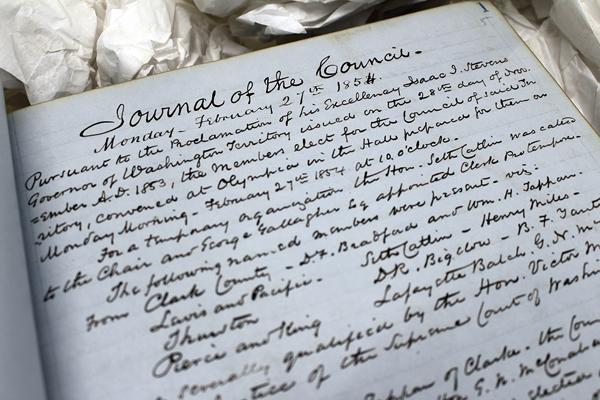 1
Journal of the Council.
Monday - February 27th 1854.
Pursuant to the Proclamation of his Excellency Isaac I. Stevens
Governor of Washington Territory issued on the 28th day of Nov-
=ember A.D. 1853, the Members elect for the Council of said Ter
ritory, convened at Olympia in the Hall prepared for them on
Monday Morning - February 27th 1854 at 10 o'clock.
For a temporary organization the Hon. Seth Catlin was called
to the Chair and George Gallagher Esq appointed Clerk Protempore.
The following named members were present - viz.
From Clark County - D. F. Bradford and Wm. H. Tappan.
Lewis and Pacific - Seth Catlin - Henry Miles -
Thurston D. R. Bigelow - B. F.
Pierce and King Lafayette Balch, G. N.
severally qualified by the Hon. Victor
of the Supreme Court of
of Clarke. the
G. N. McConaha
election